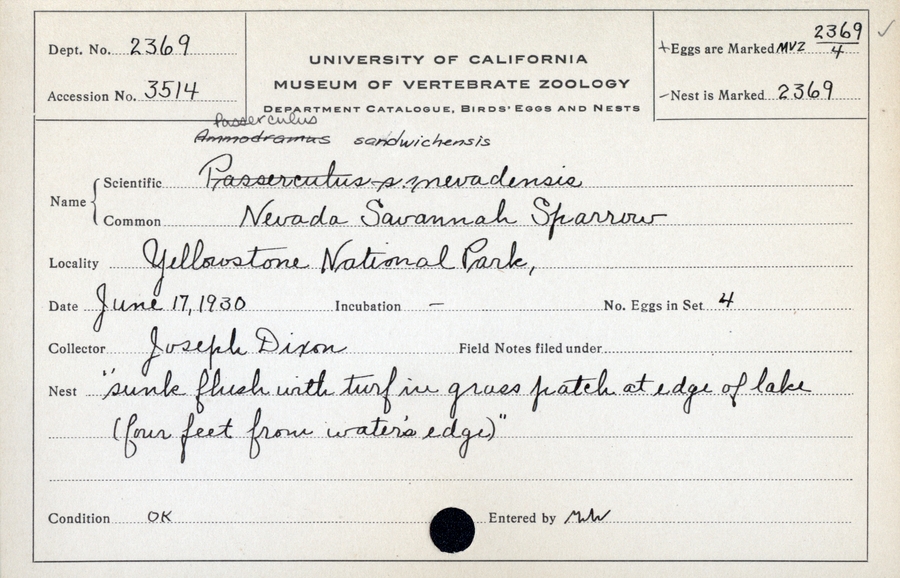 Dept. No. 2369
Accession No. 3514
UNIVERSITY OF CALIFORNIA
MUSEUM OF VERTEBRATE ZOOLOGY
DEPARTMENT CATALOGUE, BIRDS' EGGS AND NESTS
+Eggs are Marked MVZ 2369/4 ✓
-Nest is Marked 2369
Passerculus
Ammodramus sandwichensis
Name { Scientific Passerculus s. nevadensis
Common Nevada Savannah Sparrow
Locality Yellowstone National Park,
Date June 17, 1930 Incubation — No. Eggs in Set 4
Collector Joseph Dixon Field Notes filed under
Nest "sunk flush with turf in grass patch at edge of lake
(four feet from water's edge)"
Condition OK Entered by